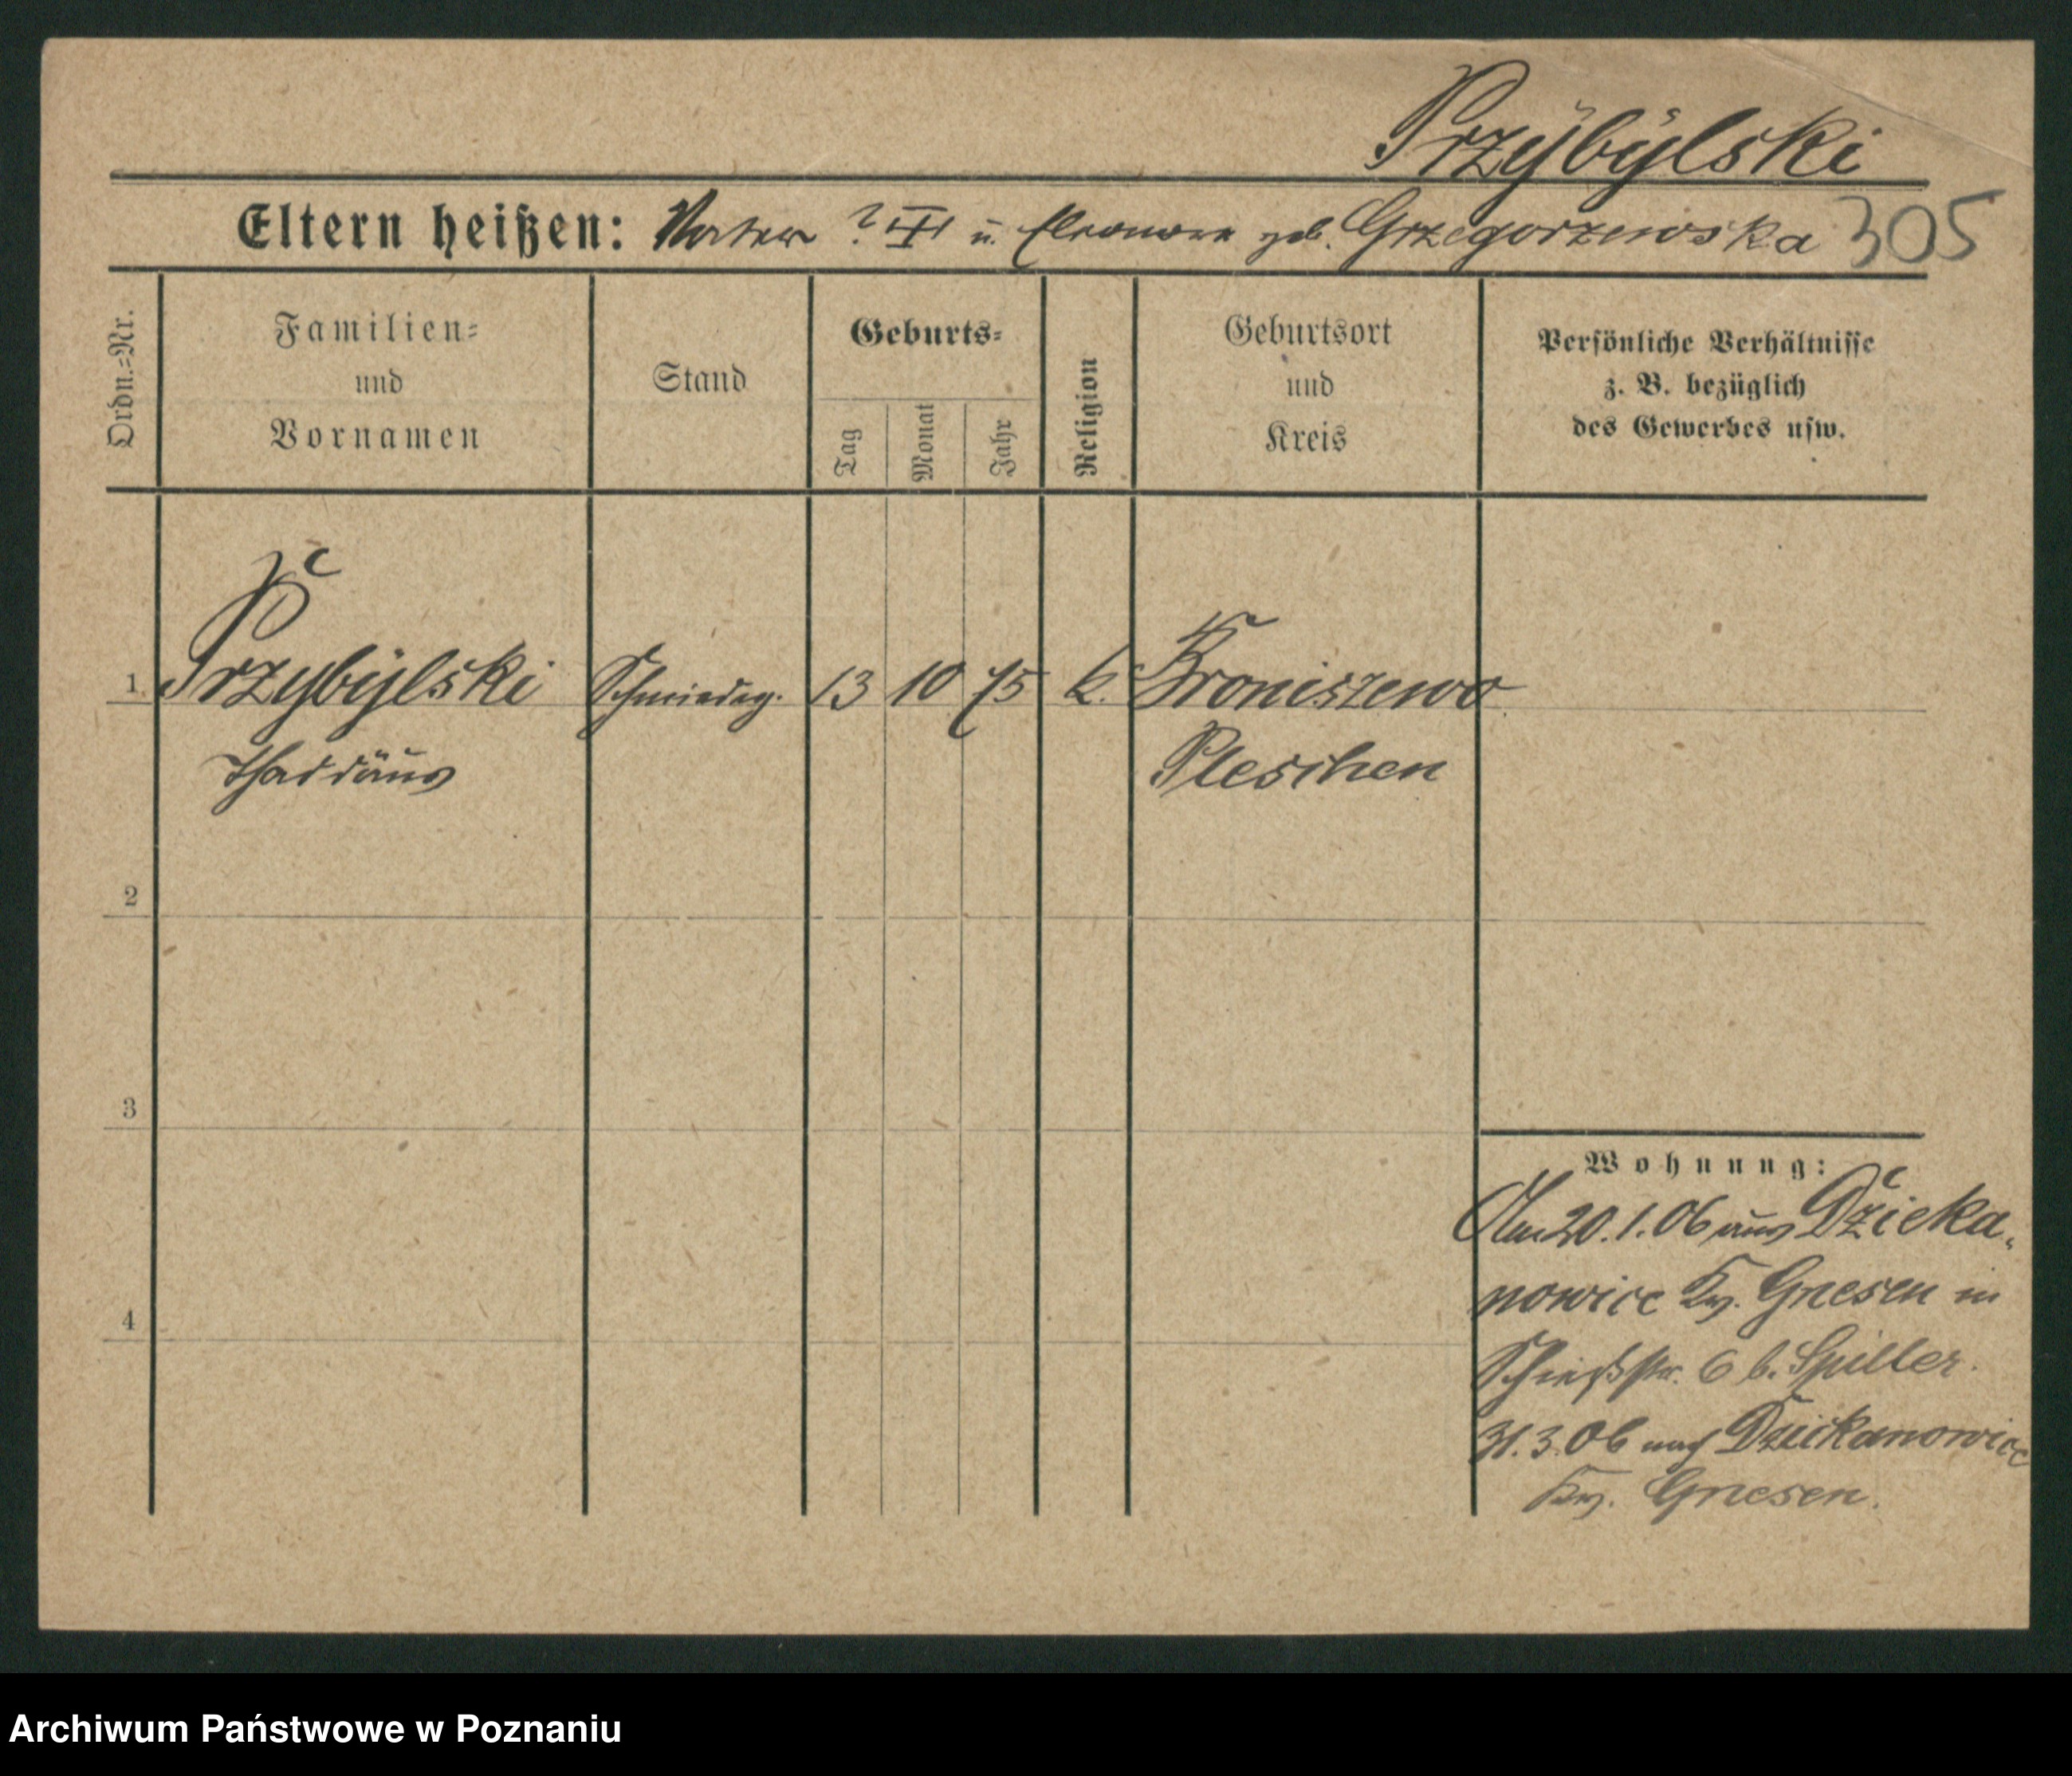 Przÿbÿlski
Eltern heißen: Vater ? u. Eleonore geb. Grzegorzewska 305
Ordn.=Nr.
Familien=
und
Vornamen
Stand
Geburts=
Tag
Monat
Jahr
Religion
Geburtsort
und
Kreis
Persönliche Verhältnisse
z. B. bezüglich
des Gewerbes usw.
1 Przybÿlski Schmiedeg. 13 10 75 k. Broniszewo
Thaddäus Pleschen
2
3
4
Wohnung:
Am 20.1.06 aus Dzieka-
nowice Kr. Gnesen in
Schießstr. 6 b. Spiller.
31.3.06 nach Dziekanowice
Kr. Gnesen.
Archiwum Państwowe w Poznaniu